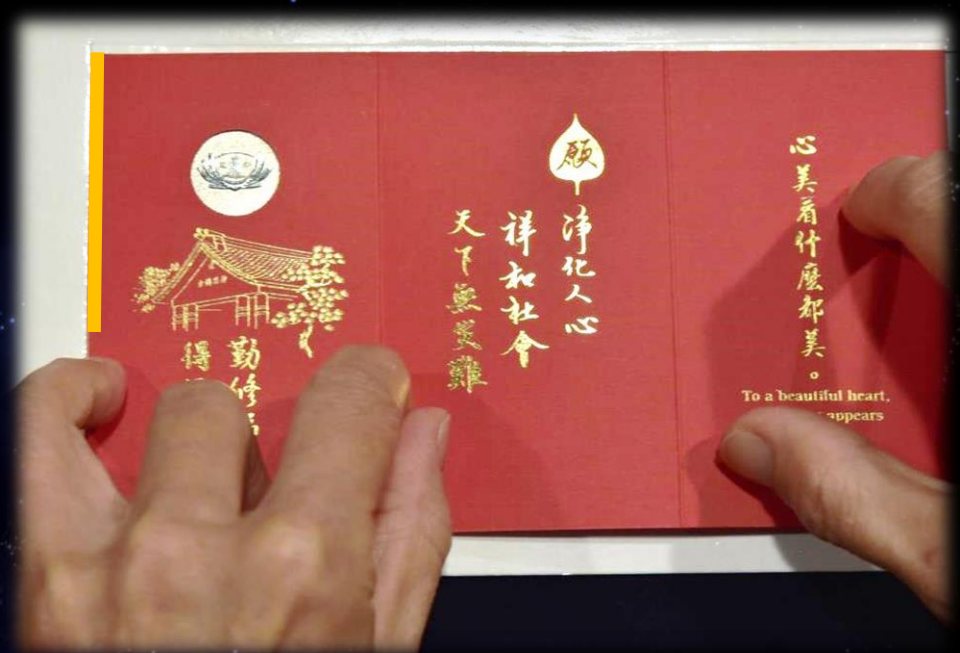 勤修
得
願
淨化人心
祥和社會
天下無災難
心美看什麼都美。
To a beautiful heart,
appears